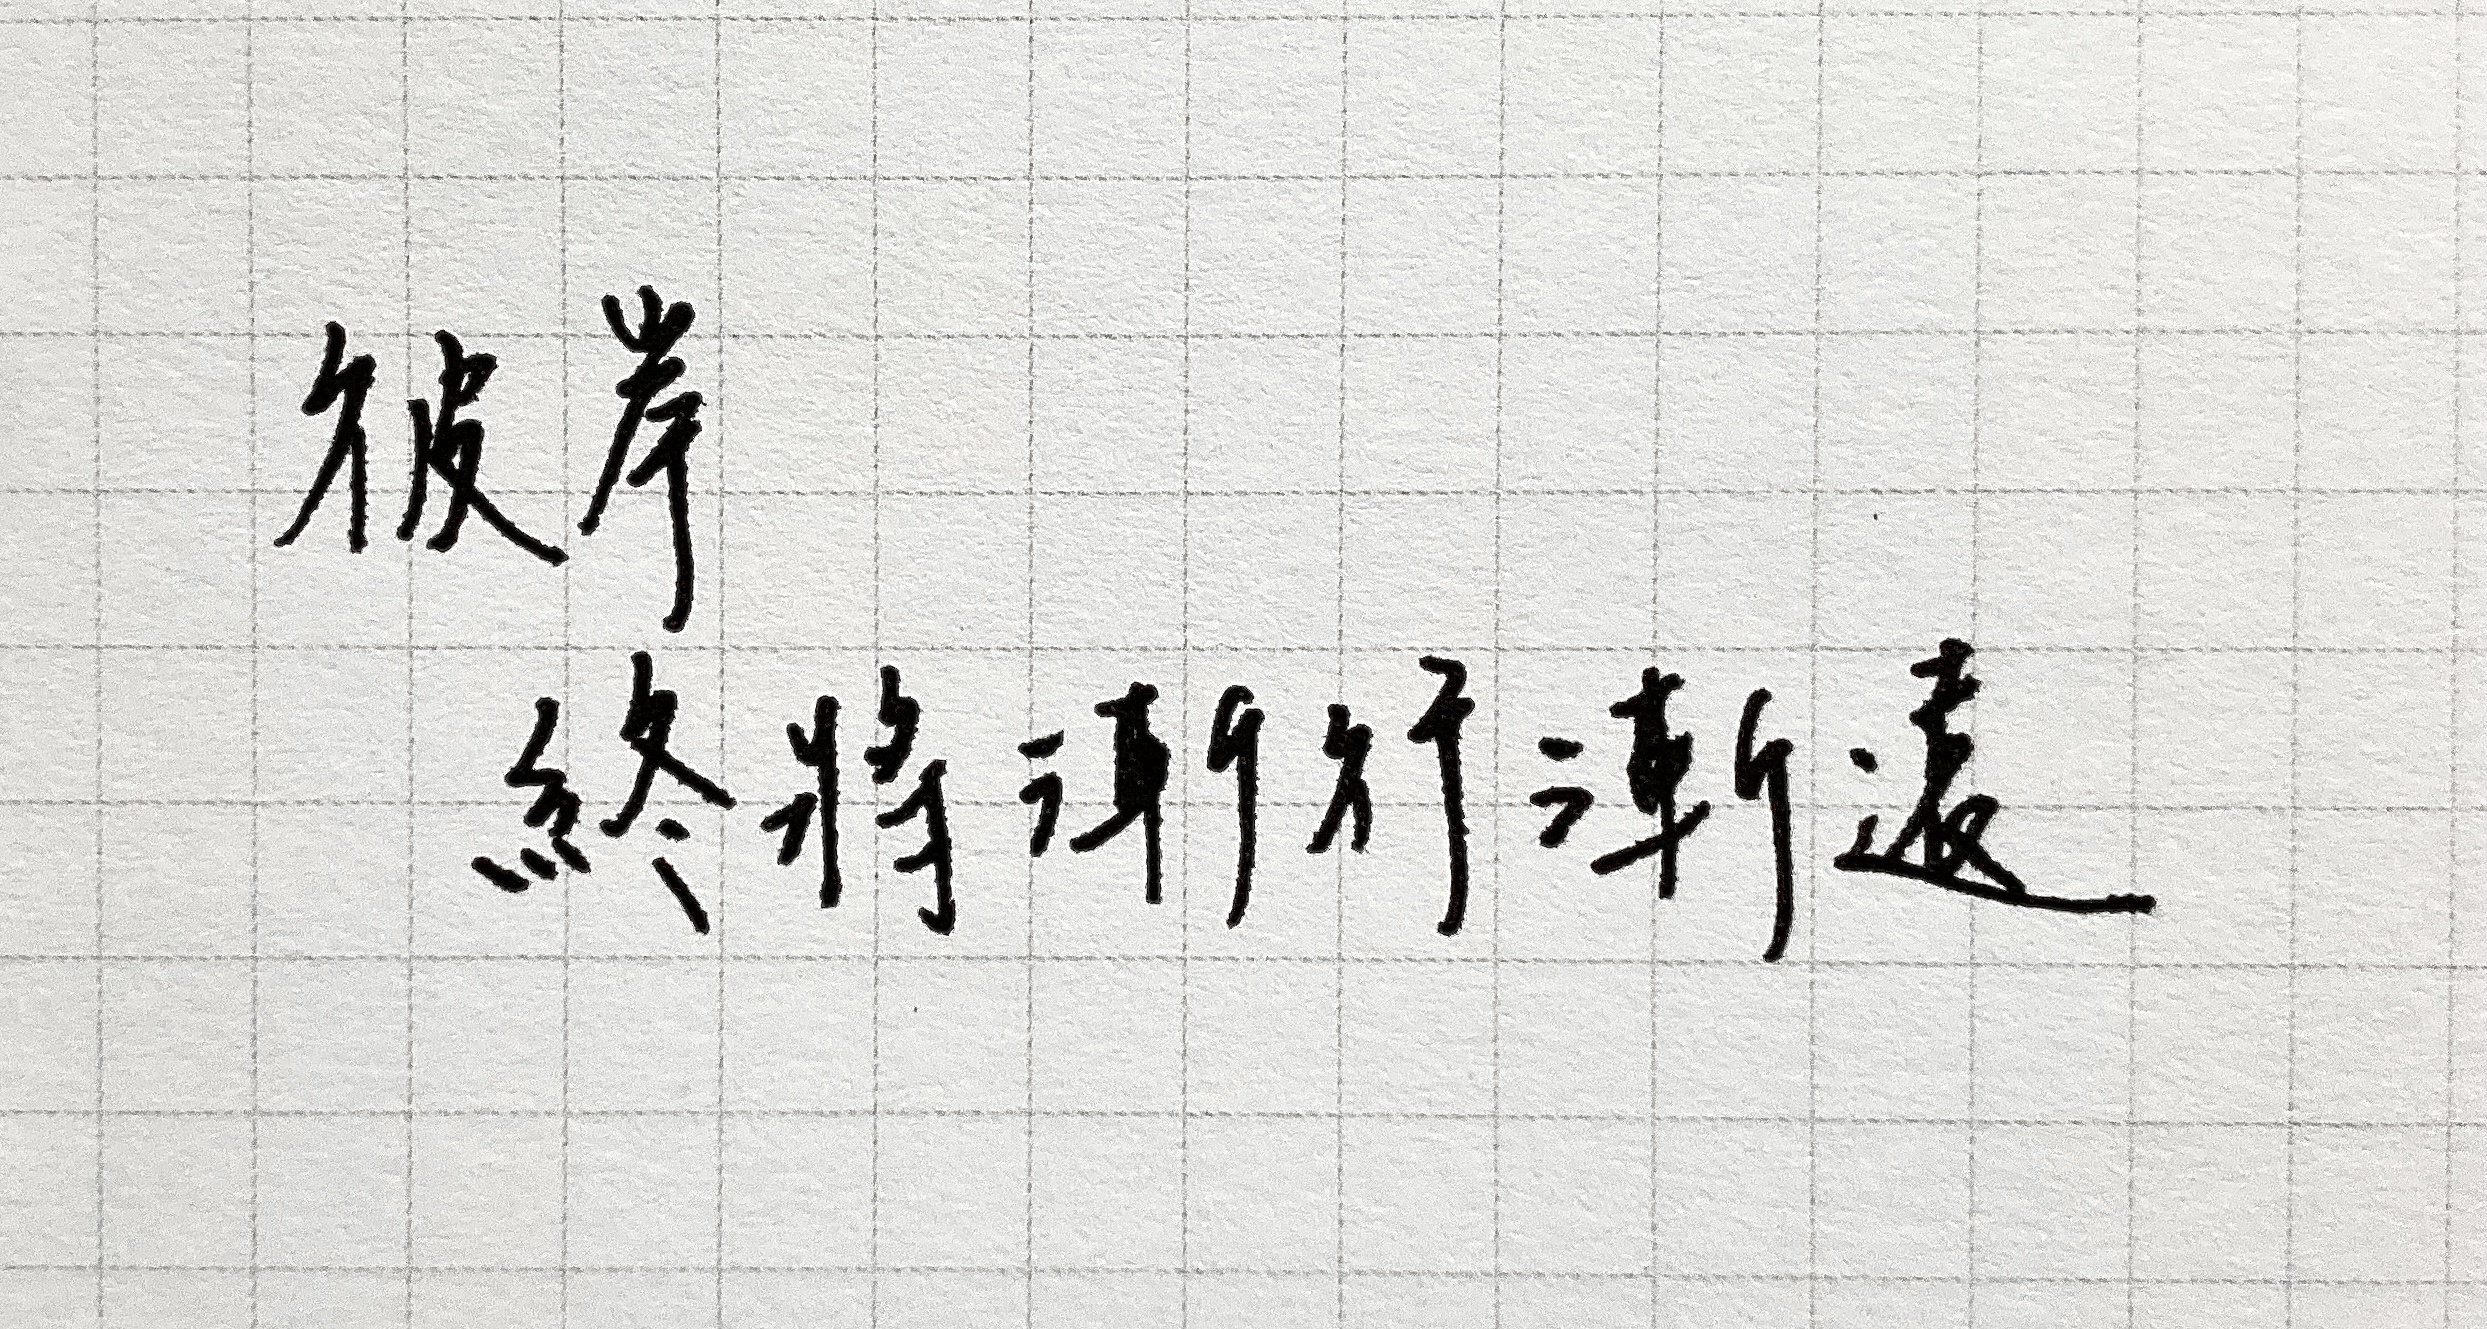 彼岸
終將漸行漸遠